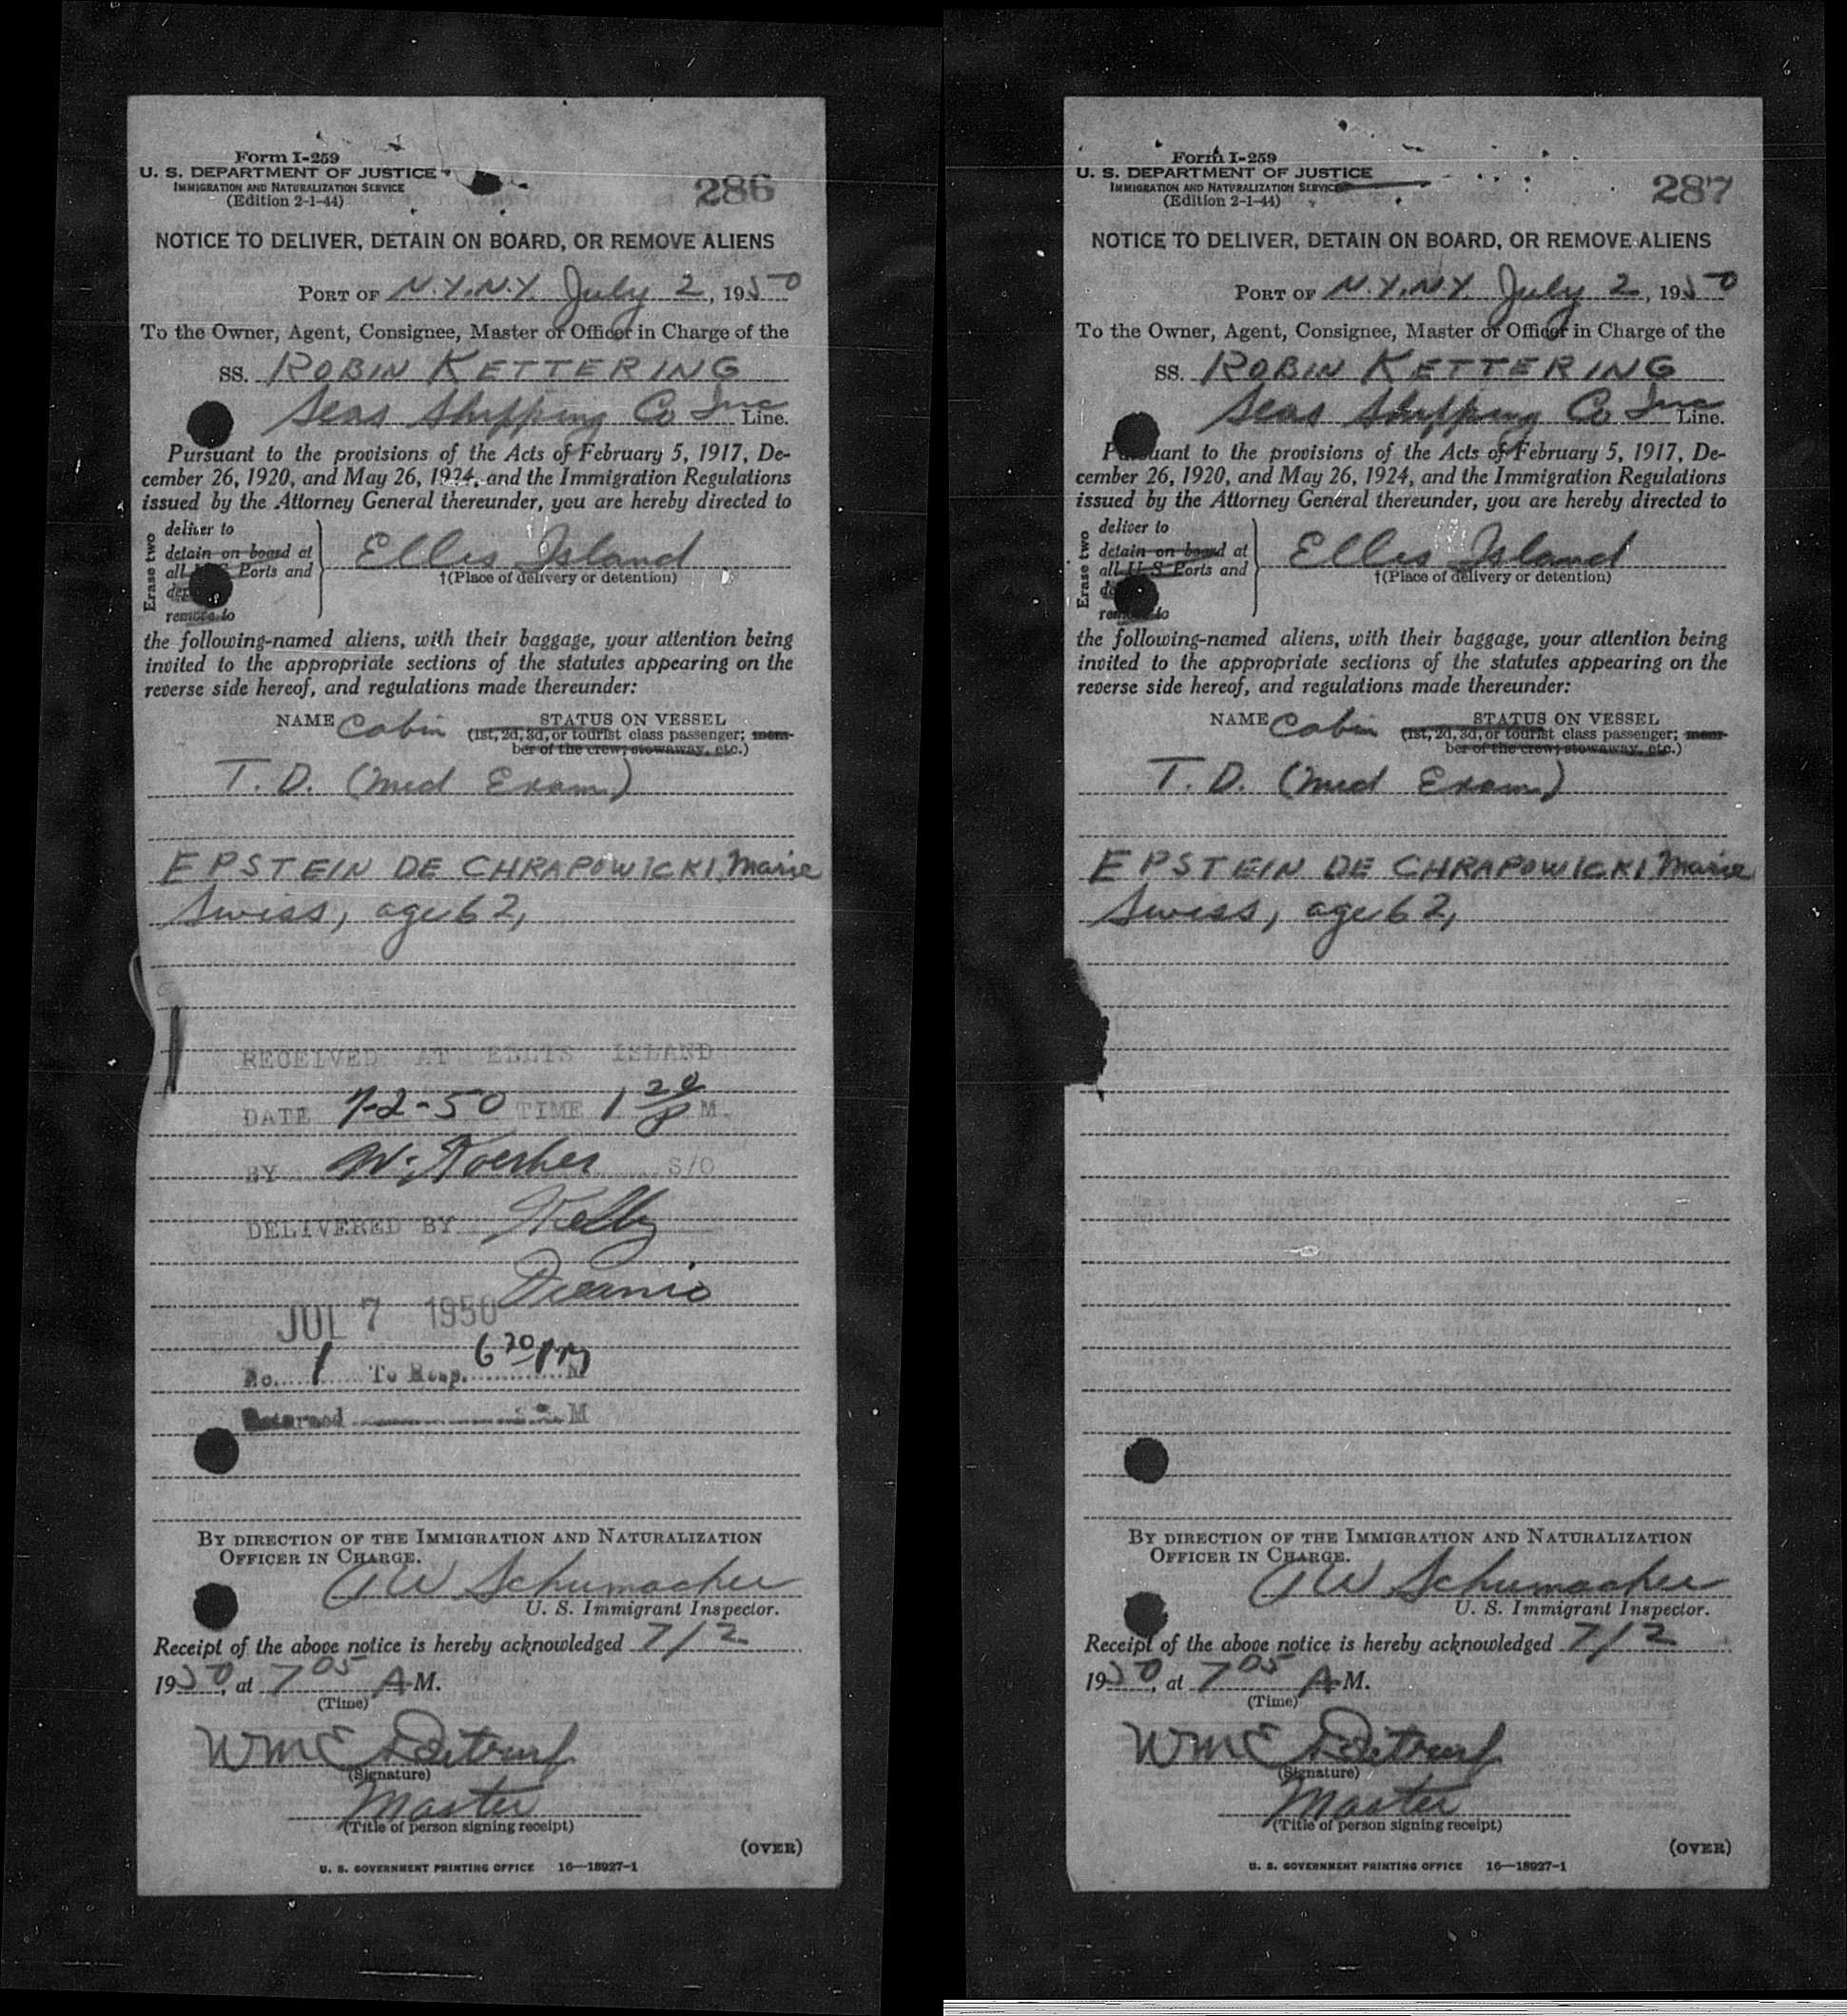 Form I-259
U. S. DEPARTMENT OF JUSTICE
IMMIGRATION AND NATURALIZATION SERVICE
(Edition 2-1-44)
286
NOTICE TO DELIVER, DETAIN ON BOARD, OR REMOVE ALIENS
PORT OF N.Y.N.Y. July 2, 1950
To the Owner, Agent, Consignee, Master or Officer in Charge of the
SS. ROBIN KETTERING
Seas Shipping Co Inc Line.
Pursuant to the provisions of the Acts of February 5, 1917, De-
cember 26, 1920, and May 26, 1924, and the Immigration Regulations
issued by the Attorney General thereunder, you are hereby directed to
Erase two
deliver to
detain on board at
all U S Ports and
remove to
Ellis Island
†(Place of delivery or detention)
the following-named aliens, with their baggage, your attention being
invited to the appropriate sections of the statutes appearing on the
reverse side hereof, and regulations made thereunder:
NAME Cabin STATUS ON VESSEL
(1st, 2d, 3d, or tourist class passenger; mem-
ber of the crew; stowaway, etc.)
T.D. (Med Exam)
EPSTEIN DE CHRAPOWICKI, Marie
Swiss, age 62,
RECEIVED AT ELLIS ISLAND
DATE 7-2-50 TIME 1 20 P M.
BY W. S/O
DELIVERED BY Kelly
JUL 7 1950
6 20 PM
No. 1 To Hosp. M
Returned M
BY DIRECTION OF THE IMMIGRATION AND NATURALIZATION
OFFICER IN CHARGE.
A W Schumacher
U. S. Immigrant Inspector.
Receipt of the above notice is hereby acknowledged 7/2
1950, at 7 05 A M.
(Time)
Wm E
(Signature)
Master
(Title of person signing receipt)
(OVER)
U. S. GOVERNMENT PRINTING OFFICE 16—18927-1
Form I-259
U. S. DEPARTMENT OF JUSTICE
IMMIGRATION AND NATURALIZATION SERVICE
(Edition 2-1-44)
287
NOTICE TO DELIVER, DETAIN ON BOARD, OR REMOVE ALIENS
PORT OF N.Y.N.Y. July 2, 1950
To the Owner, Agent, Consignee, Master or Officer in Charge of the
SS. ROBIN KETTERING
Seas Shipping Co Inc Line.
Pursuant to the provisions of the Acts of February 5, 1917, De-
cember 26, 1920, and May 26, 1924, and the Immigration Regulations
issued by the Attorney General thereunder, you are hereby directed to
Erase two
deliver to
detain on board at
all U S Ports and
remove to
Ellis Island
†(Place of delivery or detention)
the following-named aliens, with their baggage, your attention being
invited to the appropriate sections of the statutes appearing on the
reverse side hereof, and regulations made thereunder:
NAME Cabin STATUS ON VESSEL
(1st, 2d, 3d, or tourist class passenger; mem-
ber of the crew; stowaway, etc.)
T.D. (Med Exam)
EPSTEIN DE CHRAPOWICKI, Marie
Swiss, age 62,
BY DIRECTION OF THE IMMIGRATION AND NATURALIZATION
OFFICER IN CHARGE.
A W Schumacher
U. S. Immigrant Inspector.
Receipt of the above notice is hereby acknowledged 7/2
1950, at 7 05 A M.
(Time)
Wm E
(Signature)
Master
(Title of person signing receipt)
(OVER)
U. S. GOVERNMENT PRINTING OFFICE 16—18927-1